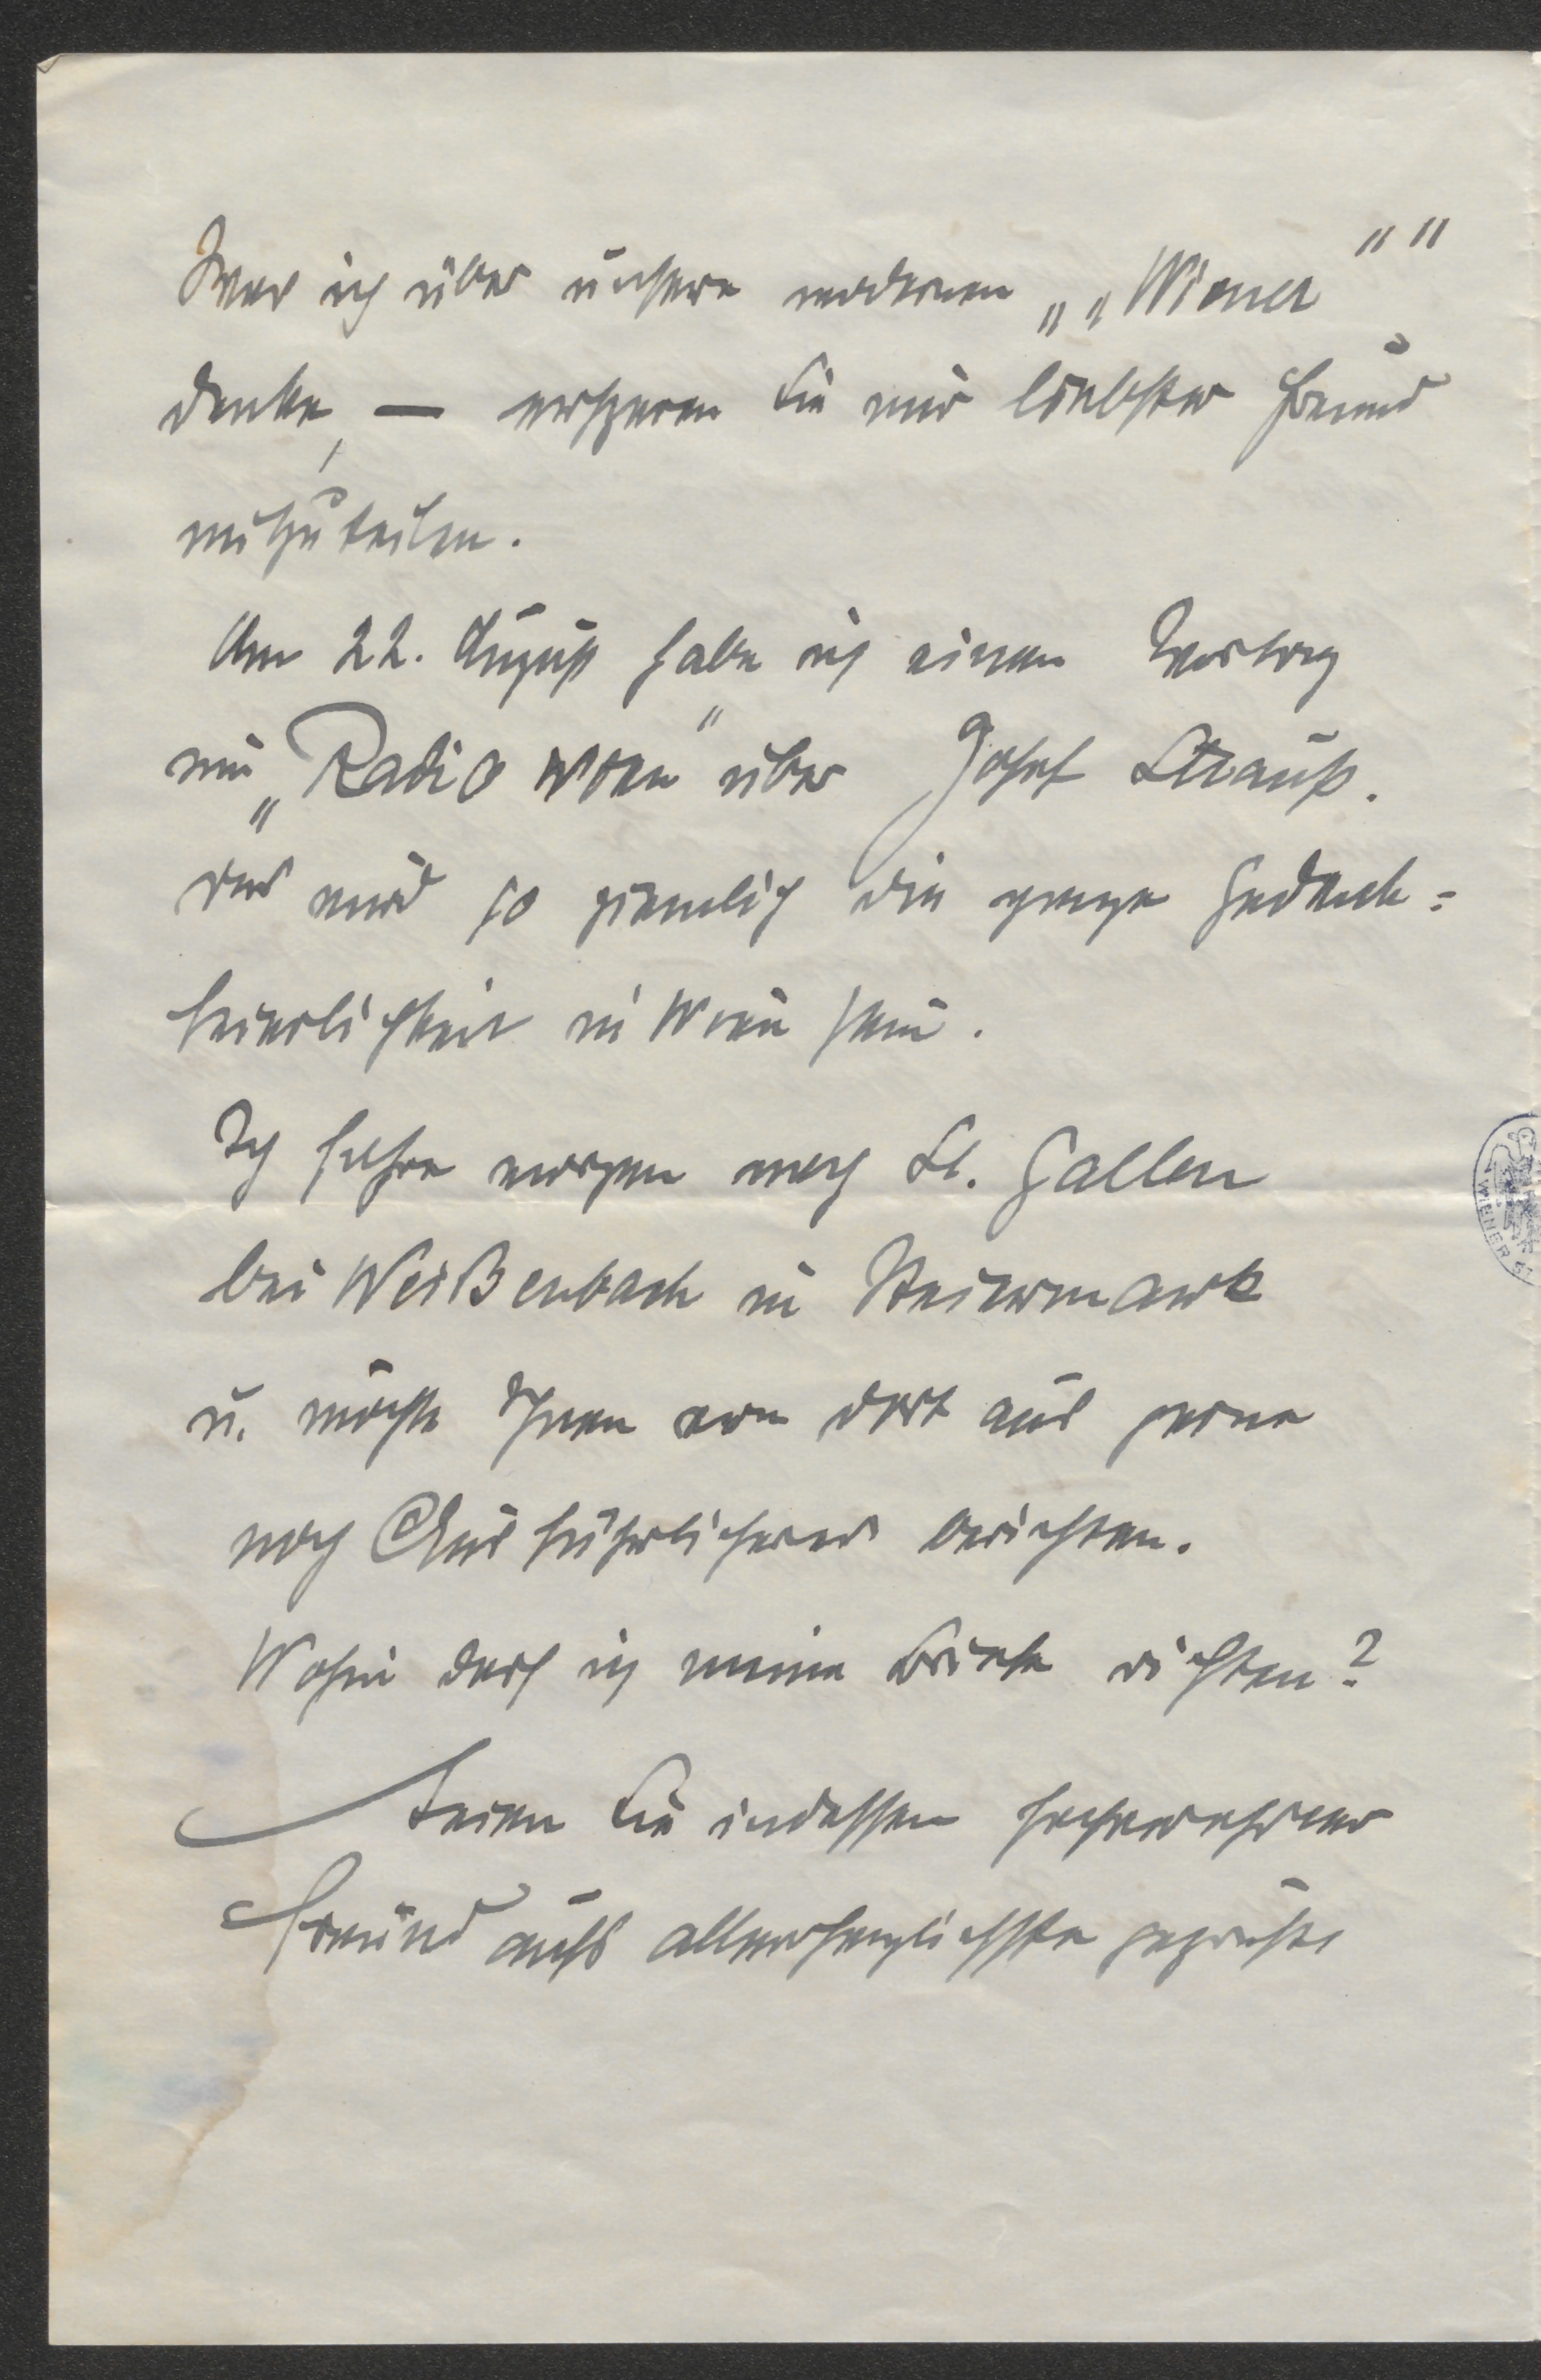 Was ich über unsere modernen „„Wiener““
denke, — ersparen Sie mir liebster Freund
mitzuteilen.
Am 22. August habe ich einen Vortrag
im „Radio Wien“ über Josef Strauß.
Das wird so ziemlich die ganze Gedenk=
feierlichkeit in Wien sein.
Ich fahre morgen nach St. Gallen
bei Weißenbach in Steiermark
u. möchte Ihnen von dort aus gerne
noch Ausführlicheres berichten.
Wohin darf ich meine Briefe richten?
Seien Sie indessen hochverehrter
Freund aufs allerherzlichste gegrüßt
WIENER ST